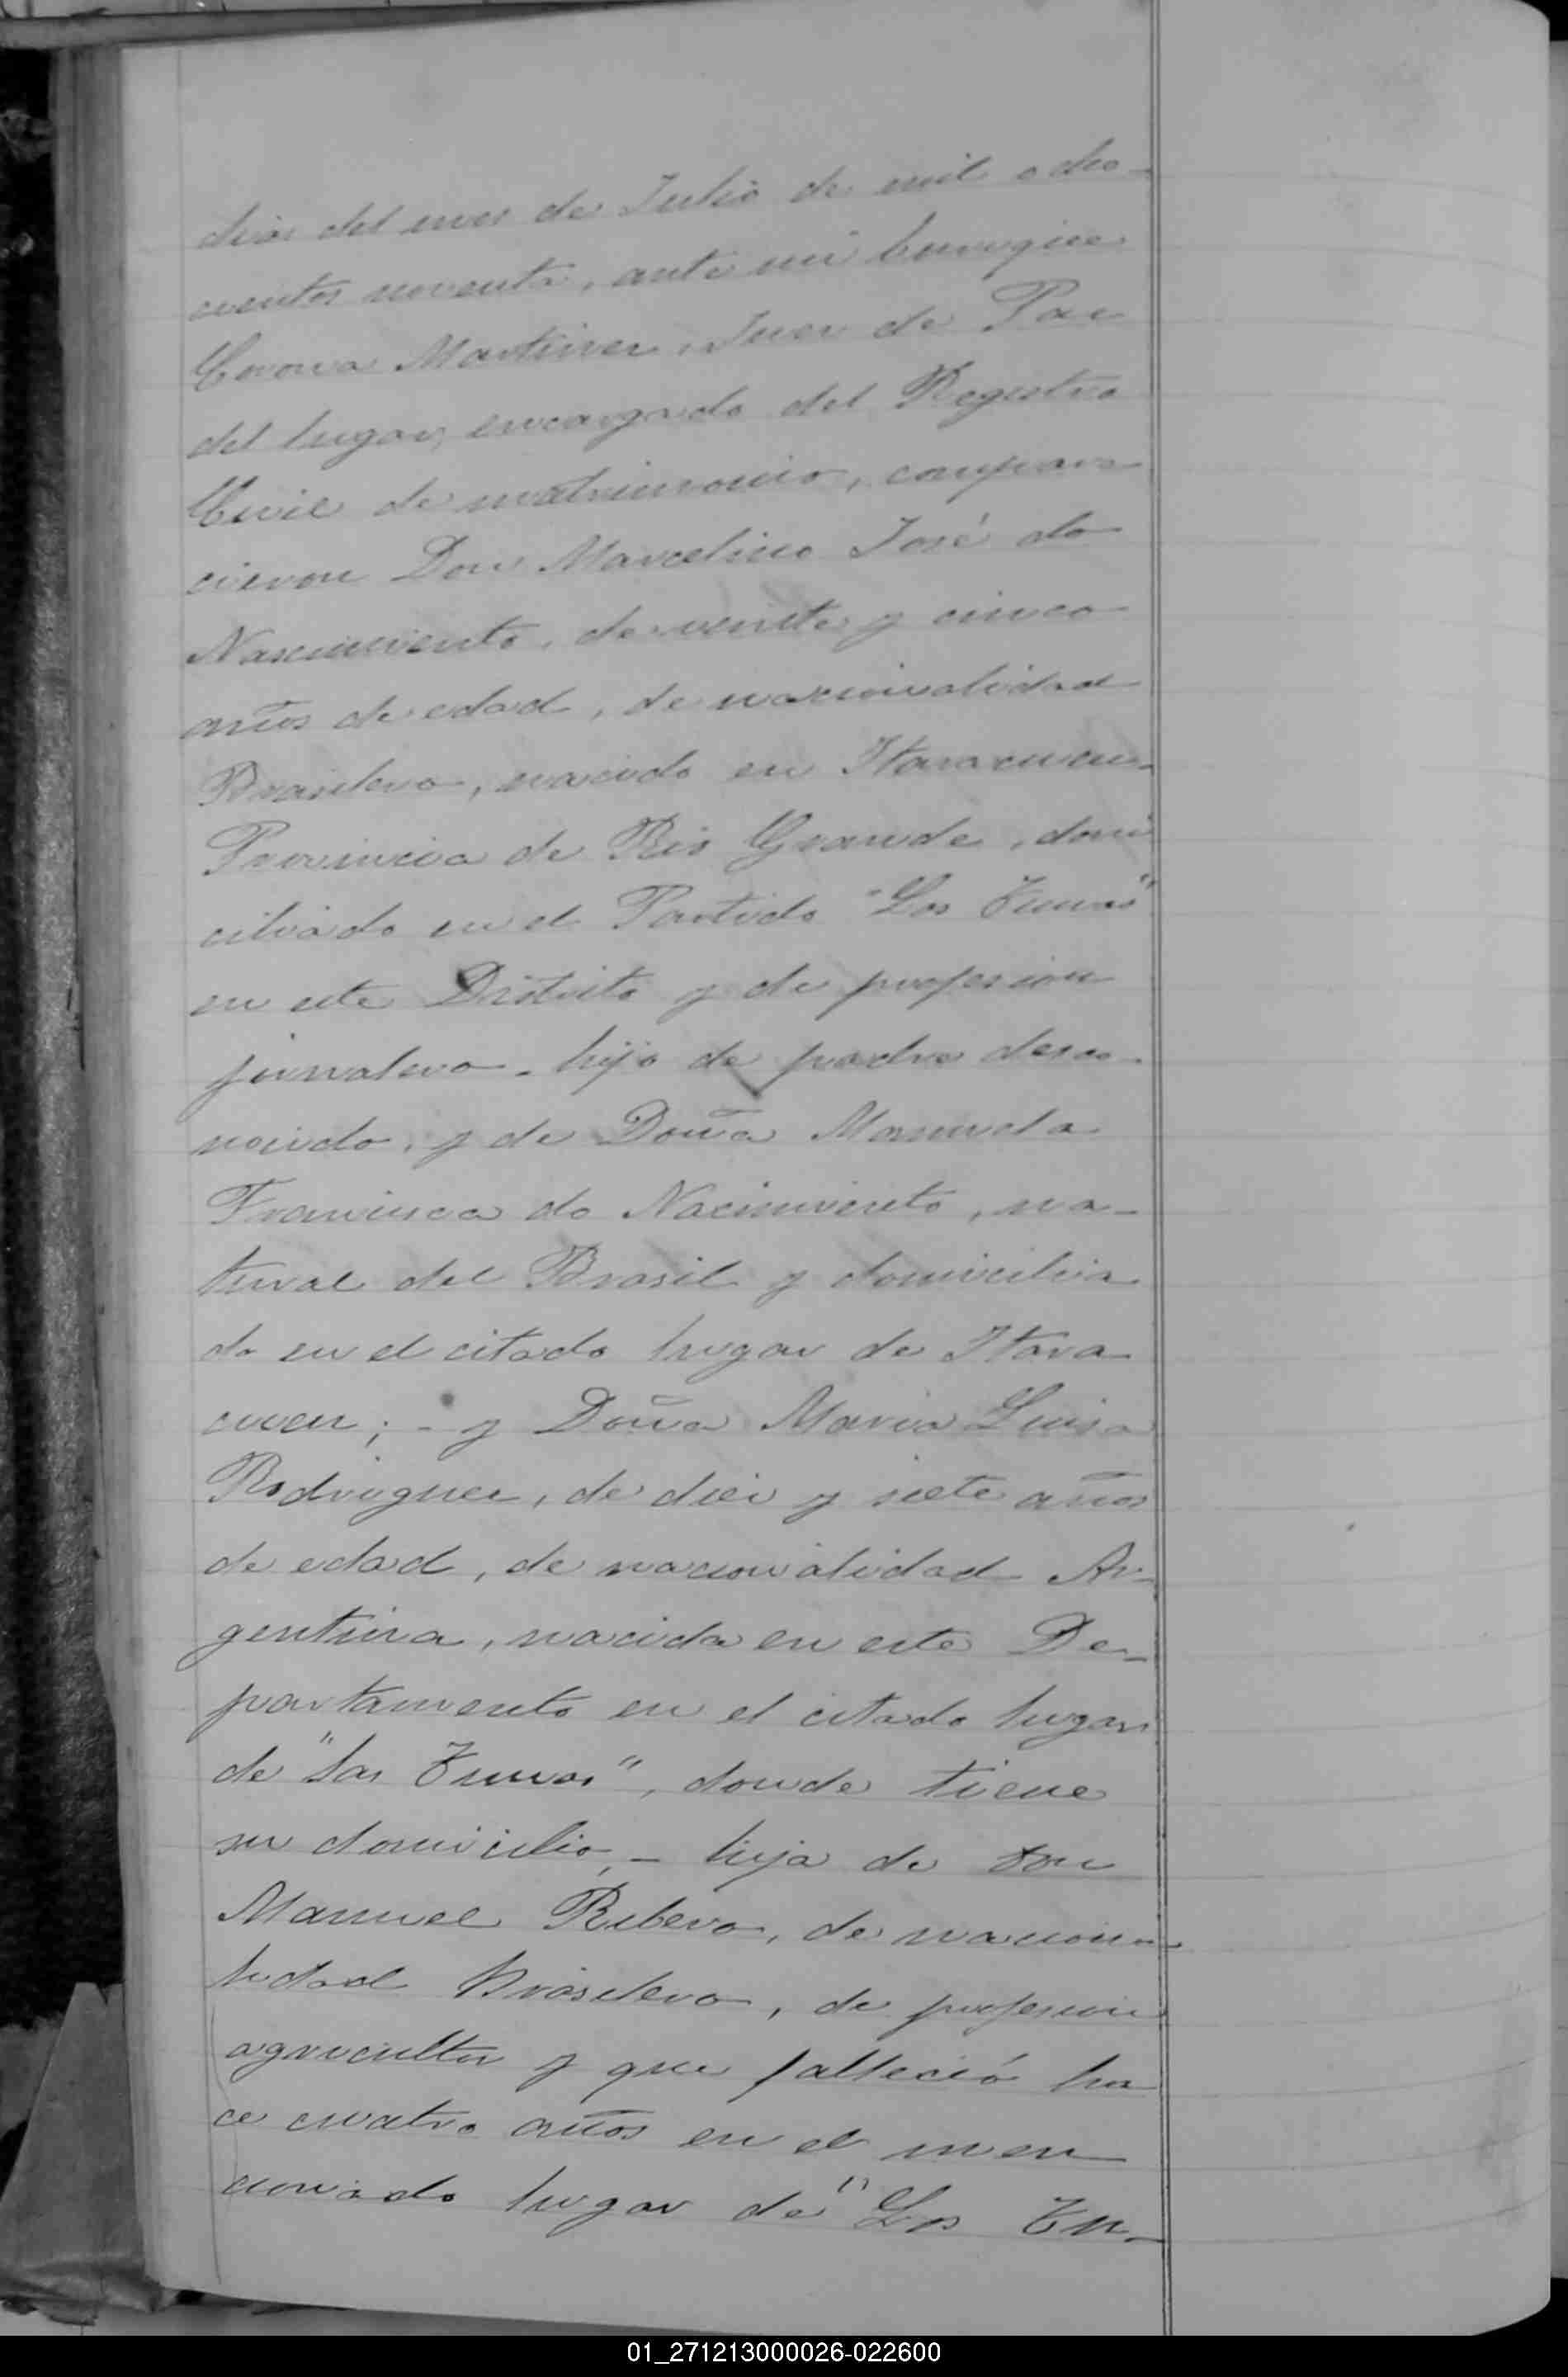 dias del mes de Julio de mil ocho-
cientos noventa, ante mi Enrique
Corona Martinez, Juez de Paz
del lugar, encargado del Registro
Civil de matrimonio, compare
cieron Don Marcelino José do
Nascimiento, de veinte y cinco
años de edad, de nacionalidad
Brasilero, nacido en
Provincia de Rio Grande, domi
ciliado en el Partido "Las Tunas"
en este Distrito y de profesion
jornalero - hijo de padre desco-
nocido, y de Doña Manuela
Francisca do Nacimiento, na-
tural del Brasil y domicilia
do en el citado lugar de
; - y Doña Maria Luisa
Rodriguez, de diez y siete años
de edad, de nacionalidad Ar-
gentina, nacida en este De-
partamento en el citado lugar
de "las Tunas", donde tiene
su domicilio, - hija de Don
Manuel Ribero, de naciona-
lidad Brasilero, de profesion
agricultor y que falleció ha
ce cuatro años en el men
cionado lugar de "Las Tu-
01_271213000026-022600